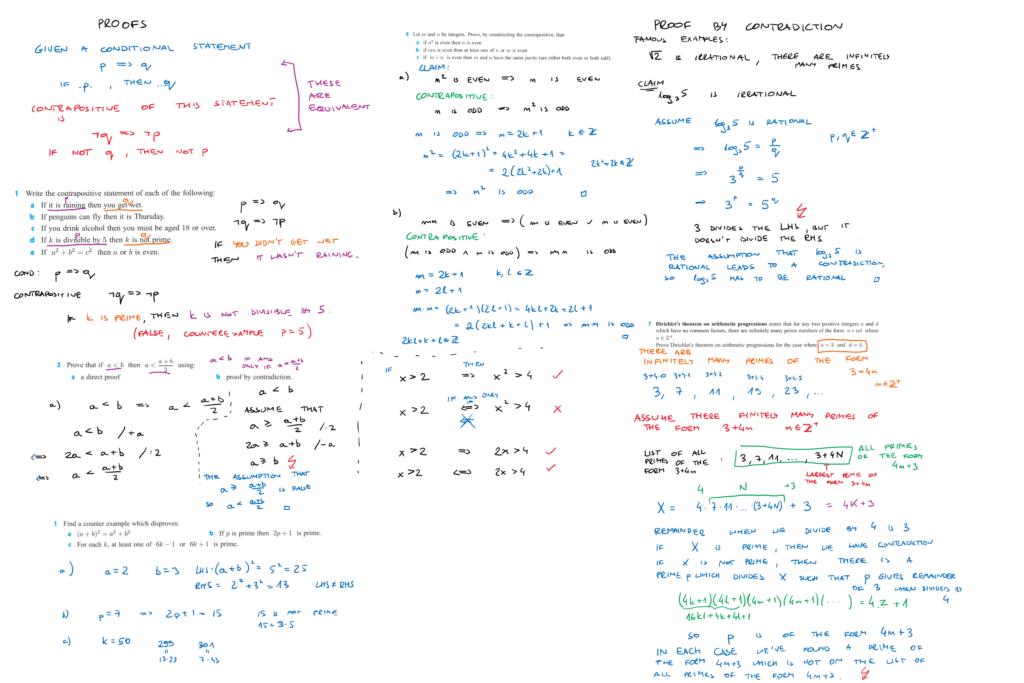 PROOFS
GIVEN A CONDITIONAL STATEMENT
p => q
IF p, THEN q
CONTRAPOSITIVE OF THIS STATEMENT
IS
¬q => ¬p
IF NOT q, THEN NOT p
THESE
ARE
EQUIVALENT
1 Write the contrapositive statement of each of the following:
a If it is raining then you get wet.
b If penguins can fly then it is Thursday.
c If you drink alcohol then you must be aged 18 or over.
d If k is divisible by 5 then k is not prime.
e If a² + b² = c² then a or b is even.
p => q
¬q => ¬p
IF YOU DIDN'T GET WET
THEN IT WASN'T RAINING.
COND: p => q
CONTRAPOSITIVE ¬q => ¬p
IF k IS PRIME, THEN k IS NOT DIVISIBLE BY 5.
(FALSE, COUNTEREXAMPLE p=5)
3 Prove that if a < b then a < (a+b)/2 using:
a a direct proof
b proof by contradiction.
a<b IF AND
ONLY IF a<(a+b)/2
a) a<b => a < (a+b)/2
a<b /+a
<=> 2a < a+b /:2
<=> a < (a+b)/2
a < b
ASSUME THAT
a ≥ (a+b)/2 /·2
2a ≥ a+b /-a
a ≥ b
THE ASSUMPTION THAT
a ≥ (a+b)/2 IS FALSE
SO a < (a+b)/2
1 Find a counter example which disproves:
a (a + b)² = a² + b²
b If p is prime then 2p + 1 is prime.
c For each k, at least one of 6k − 1 or 6k + 1 is prime.
a) a=2 b=3 LHS:(a+b)² = 5² = 25
RHS = 2²+3² = 13 LHS ≠ RHS
b) p=7 => 2p+1 = 15 15 IS NOT PRIME
15 = 3·5
c) k=50 299 301
13·23 7·43
2 Let m and n be integers. Prove, by constructing the contrapositive, that:
a if n² is even then n is even
b if mn is even then at least one of m or n is even
c if m + n is even then m and n have the same parity (are either both even or both odd).
CLAIM:
a) m² IS EVEN => m IS EVEN
CONTRAPOSITIVE:
m IS ODD => m² IS ODD
m IS ODD => m=2k+1 k∈Z
m² = (2k+1)² = 4k²+4k+1 =
= 2(2k²+2k)+1 2k²+2k∈Z
=> m² IS ODD
b) mn IS EVEN => (m IS EVEN ∨ n IS EVEN)
CONTRAPOSITIVE:
(m IS ODD ∧ n IS ODD) => mn IS ODD
m = 2k+1 k, l ∈ Z
n = 2l+1
m·n = (2k+1)(2l+1) = 4kl+2k+2l+1
= 2(2kl+k+l)+1 => m·n IS ODD
2kl+k+l∈Z
IF THEN
x>2 => x²>4 ✓
IF AND ONLY IF
x>2 <=> x²>4 ✗
x>2 => 2x>4 ✓
x>2 <=> 2x>4 ✓
PROOF BY CONTRADICTION
FAMOUS EXAMPLES:
√2 IS IRRATIONAL, THERE ARE INFINITELY
MANY PRIMES
CLAIM
log₃5 IS IRRATIONAL
ASSUME log₃5 IS RATIONAL
=> log₃5 = p/q p,q∈Z⁺
=> 3^(p/q) = 5
=> 3^p = 5^q
3 DIVIDES THE LHS, BUT IT
DOESN'T DIVIDE THE RHS
THE ASSUMPTION THAT log₃5 IS
RATIONAL LEADS TO A CONTRADICTION,
SO log₃5 HAS TO BE RATIONAL
7 Dirichlet's theorem on arithmetic progressions states that for any two positive integers a and d
which have no common factors, there are infinitely many prime numbers of the form a + nd where
n ∈ Z⁺.
Prove Dirichlet's theorem on arithmetic progressions for the case where a = 3 and d = 4.
THERE ARE
INFINITELY MANY PRIMES OF THE FORM
3+4m
m∈Z⁺
3+4·0 3+4·1 3+4·2 3+4·4 3+4·5
3, 7, 11, 19, 23, ...
ASSUME THERE FINITELY MANY PRIMES OF
THE FORM 3+4m m∈Z⁺
LIST OF ALL
PRIMES OF THE :
FORM 3+4m
3, 7, 11, ..., 3+4N
ALL PRIMES
OF THE FORM
4m+3
LARGEST PRIME OF
THE FORM 3+4m
4 N +3
X = 4·7·11·...·(3+4N) + 3 = 4K+3
REMAINDER WHEN WE DIVIDE BY 4 IS 3
IF X IS PRIME, THEN WE HAVE CONTRADICTION
IF X IS NOT PRIME, THEN THERE IS A
PRIME p WHICH DIVIDES X SUCH THAT p GIVES REMAINDER
OF 3 WHEN DIVIDED BY
4
(4k+1)(4l+1)(4m+1)(4n+1)(...) = 4·Z+1
16kl+4k+4l+1
SO p IS OF THE FORM 4m+3
IN EACH CASE WE'VE FOUND A PRIME OF
THE FORM 4m+3 WHICH IS NOT ON THE LIST OF
ALL PRIMES OF THE FORM 4m+3.